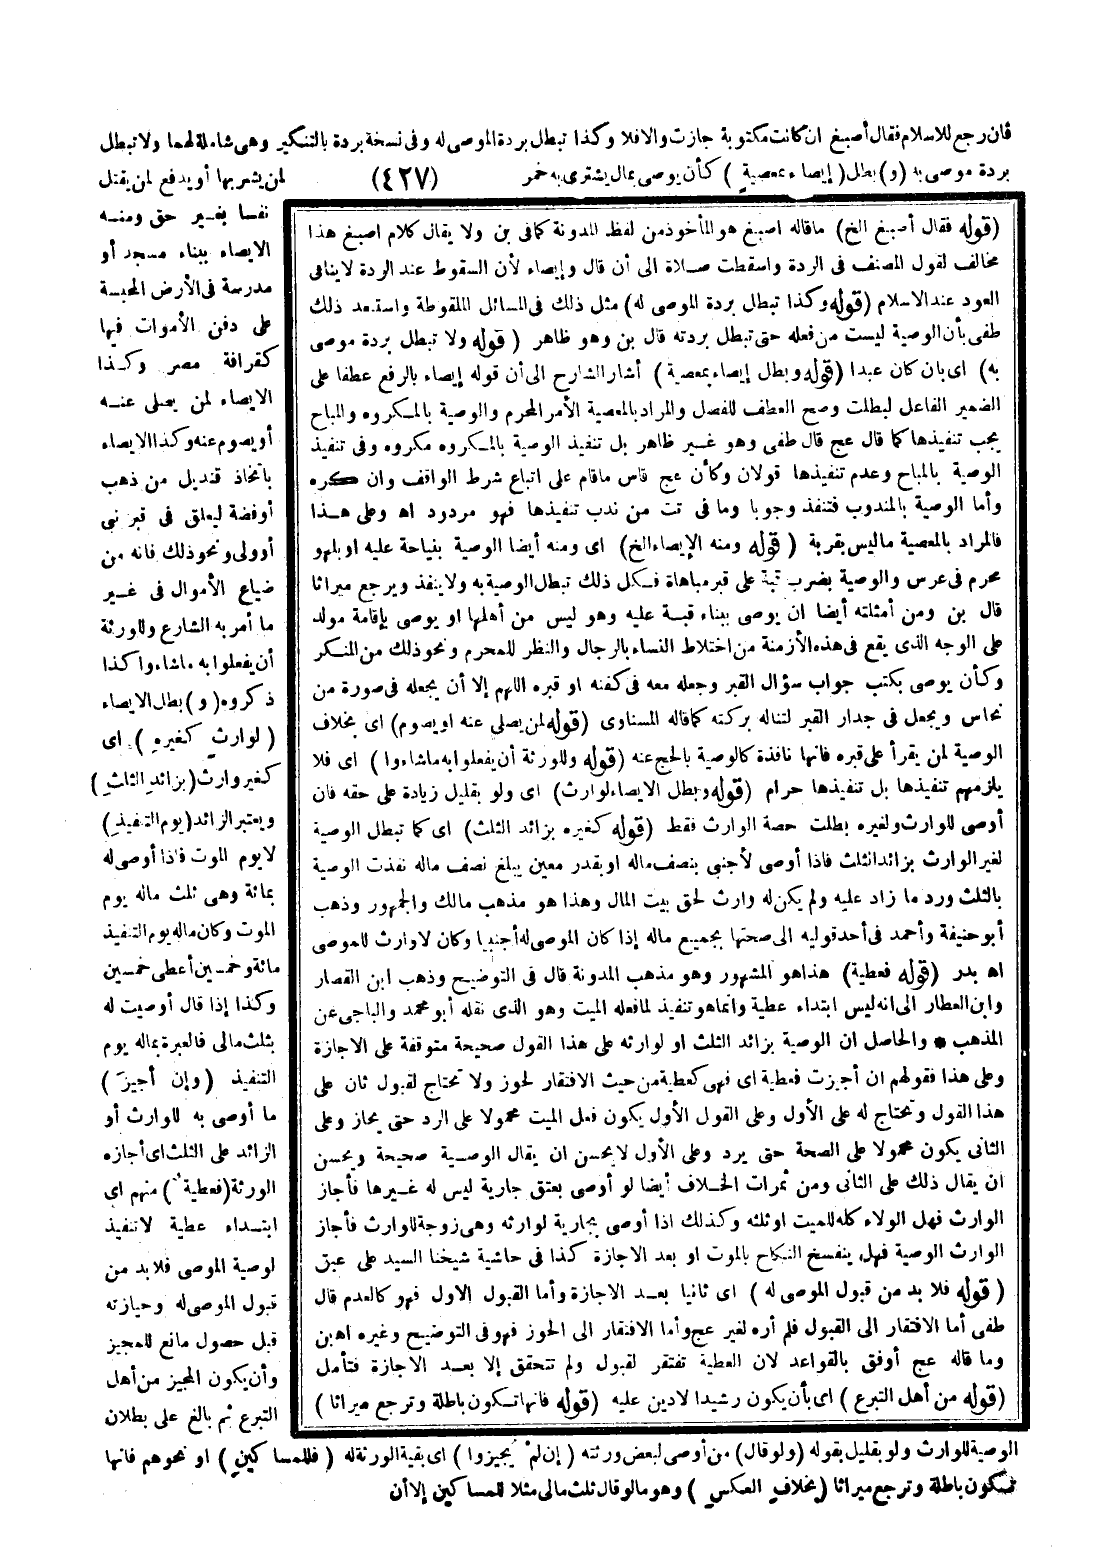 فان رجع للاسلام فقال أصبغ ان كانت مكتوبة جازت والا فلا وكذا تبطل بردة الموصى له وفى نسخة بردة بالتنكير وهى شاملة لهما ولا تبطل
بردة موصى به (و) بطل (إيصاء بمعصية) كأن يوصى بمال يشترى به خمر
(٤٢٧)
لمن يشربها أو يدفع لمن يقتل
نفسا بغير حق ومنه
الايصاء ببناء مسجد أو
مدرسة فى الأرض المحبسة
على دفن الأموات فيها
كقرافة مصر وكذا
الايصاء لمن يصلى عنه
أو يصوم عنه وكذا الايصاء
باتخاذ قنديل من ذهب
أو فضة ليعلق فى قبر نبى
أو ولى ونحو ذلك فانه من
ضياع الأموال فى غير
ما أمر به الشارع وللورثة
أن يفعلوا به ماشاءوا كذا
ذكروه (و) بطل الايصاء
(لوارث كغيره) اى
كغير وارث (بزائد الثلث)
ويعتبر الزائد (يوم التنفيذ)
لا يوم الموت فاذا أوصى له
بمائة وهى ثلث ماله يوم
الموت وكان ماله يوم التنفيذ
مائة وخمسين أعطى خمسين
وكذا إذا قال أوصيت له
بثلث مالى فالعبرة بماله يوم
التنفيذ (وإن أجيز)
ما أوصى به للوارث أو
الزائد على الثلث اى أجازه
الورثة (فعطية) منهم اى
ابتداء عطية لا تنفيذ
لوصية الموصى فلا بد من
قبول الموصى له وحيازته
قبل حصول مانع للمجيز
وأن يكون المجيز من أهل
التبرع ثم بالغ على بطلان
(قوله فقال أصبغ الخ) ماقاله اصبغ هو المأخوذ من لفظ المدونة كما فى بن ولا يقال كلام اصبغ هذا
مخالف لقول المصنف فى الردة واسقطت صلاة الى أن قال وإيصاء لأن السقوط عند الردة لا ينافى
العود عند الاسلام (قوله وكذا تبطل بردة الموصى له) مثل ذلك فى المسائل الملقوطة واستبعد ذلك
طفى بأن الوصية ليست من فعله حتى تبطل بردته قال بن وهو ظاهر (قوله ولا تبطل بردة موصى
به) اى بان كان عبدا (قوله وبطل إيصاء بمعصية) أشار الشارح الى أن قوله إيصاء بالرفع عطفا على
الضمير الفاعل لبطلت وصح العطف للفصل والمراد بالمعصية الأمر المحرم والوصية بالمكروه والمباح
يجب تنفيذها كما قال عج قال طفى وهو غير ظاهر بل تنفيذ الوصية بالمكروه مكروه وفى تنفيذ
الوصية بالمباح وعدم تنفيذها قولان وكأن عج قاس ماقام على اتباع شرط الواقف وان كره
وأما الوصية بالمندوب فتنفذ وجوبا وما فى تت من ندب تنفيذها فهو مردود اه وعلى هذا
فالمراد بالمعصية ماليس بقربة (قوله ومنه الإيصاء الخ) اى ومنه أيضا الوصية بنياحة عليه او بلهو
محرم فى عرس والوصية بضرب قبة على قبر مباهاة فكل ذلك تبطل الوصية به ولا ينفذ ويرجع ميراثا
قال بن ومن أمثلته أيضا ان يوصى ببناء قبة عليه وهو ليس من أهلها او يوصى بإقامة مولد
على الوجه الذى يقع فى هذه الأزمنة من اختلاط النساء بالرجال والنظر للمحرم ونحو ذلك من المنكر
وكأن يوصى بكتب جواب سؤال القبر وجعله معه فى كفنه او قبره اللهم إلا أن يجعله فى صورة من
نحاس ويجعل فى جدار القبر لتناله بركته كما قاله المسناوى (قوله لمن يصلي عنه او يصوم) اى بخلاف
الوصية لمن يقرأ على قبره فانها نافذة كالوصية بالحج عنه (قوله وللورثة أن يفعلوا به ماشاءوا) اى فلا
يلزمهم تنفيذها بل تنفيذها حرام (قوله وبطل الايصاء لوارث) اى ولو بقليل زيادة على حقه فان
أوصى للوارث ولغيره بطلت حصة الوارث فقط (قوله كغيره بزائد الثلث) اى كما تبطل الوصية
لغير الوارث بزائد الثلث فاذا أوصى لأجنبي بنصف ماله او بقدر معين يبلغ نصف ماله نفذت الوصية
بالثلث ورد ما زاد عليه ولم يكن له وارث لحق بيت المال وهذا هو مذهب مالك والجمهور وذهب
أبو حنيفة وأحمد فى أحد قوليه الى صحتها بجميع ماله إذا كان الموصى له أجنبيا وكان لا وارث للموصى
اه بدر (قوله فعطية) هذا هو المشهور وهو مذهب المدونة قال فى التوضيح وذهب ابن القصار
وابن العطار الى انه ليس ابتداء عطية وانما هو تنفيذ لما فعله الميت وهو الذى نقله أبو محمد والباجى عن
المذهب * والحاصل ان الوصية بزائد الثلث او لوارثه على هذا القول صحيحة متوقفة على الاجازة
وعلى هذا فقولهم ان أجيزت فعطية اى فهى كعطية من حيث الافتقار لحوز ولا تحتاج لقبول ثان على
هذا القول وتحتاج له على الأول وعلى القول الأول يكون فعل الميت محمولا على الرد حتى يجاز وعلى
الثانى يكون محمولا على الصحة حتى يرد وعلى الأول لا يحسن ان يقال الوصية صحيحة ويحسن
ان يقال ذلك على الثانى ومن ثمرات الخلاف أيضا لو أوصى بعتق جارية ليس له غيرها فأجاز
الوارث فهل الولاء كله للميت او ثلثه وكذلك اذا أوصى بجارية لوارثه وهى زوجة للوارث فأجاز
الوارث الوصية فهل ينفسخ النكاح بالموت او بعد الاجازة كذا فى حاشية شيخنا السيد على عبق
(قوله فلا بد من قبول الموصى له) اى ثانيا بعد الاجازة وأما القبول الاول فهو كالعدم قال
طفى أما الافتقار الى القبول فلم أره لغير عج وأما الافتقار الى الحوز فهو فى التوضيح وغيره اه بن
وما قاله عج أوفق بالقواعد لان العطية تفتقر لقبول ولم تتحقق إلا بعد الاجازة فتأمل
(قوله من أهل التبرع) اى بأن يكون رشيدا لا دين عليه (قوله فانها تكون باطلة وترجع ميراثا)
الوصية للوارث ولو بقليل بقوله (ولو قال) من أوصى لبعض ورثته (إن لم يجيزوا) اى بقية الورثة له (فللمساكين) او نحوهم فانها
تكون باطلة وترجع ميراثا (بخلاف العكس) وهو ما لو قال ثلث مالى مثلا للمساكين إلا أن